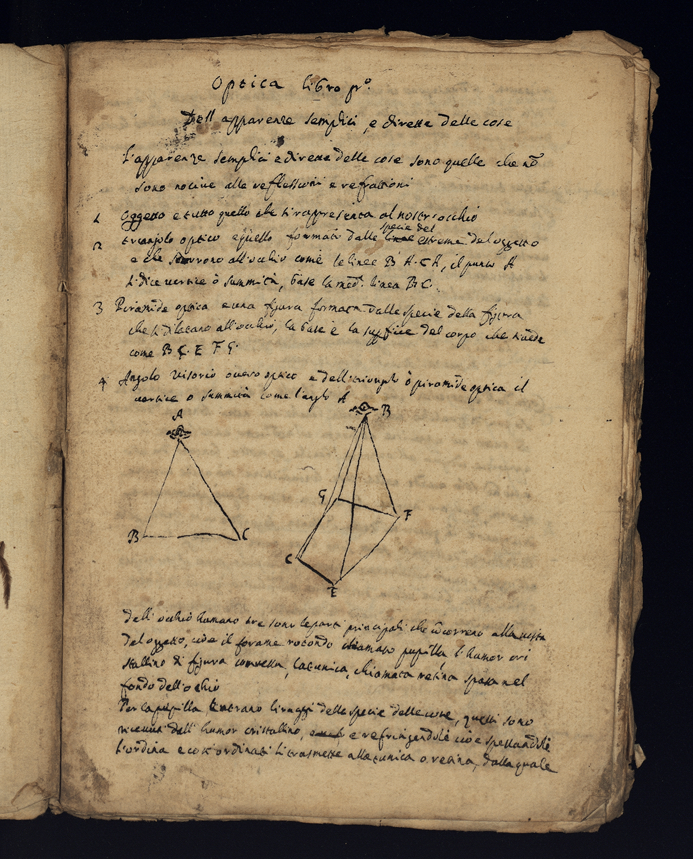 Optica libro pr.º
Dell apparenze semplici, e dirette delle cose
L'apparenze semplici e dirette delle cose sono quelle che nõ
sono nocive alle reflessioni e refrattioni
1 Oggetto e tutto quello che si rapresenta al nostr occhio
specie del
2 triangolo optico e quello formato dalle linee estreme del oggetto
e che scorrono all'occhio come le linee B A. C A, il punto A
si dice vertice ò summità, base la med. linea B C.
3 Piramide optica e una figura formata dalle specie della figura
che si dilatano all'occhio, la base è la superficie del corpo che si vede
come B C. E F G.
4 Angolo visorio overo optico e dell triangolo ò piramide optica il
vertice o summità come l'anglo A
A
B
C
B
G
F
C
E
dell'occhio humano tre sono le parti principali che cõcorrono alla vista
del oggetto, cioè il forame rotondo chiamato pupilla l'humor cri
stallino di figura convessa, la tunica, chiamata retina sparsa nel
fondo dell'occhio
Per la pupilla entrano li raggi delle specie delle cose, questi sono
ricevuti dell'humor cristallino, e refringendoli cioè spezzandoli
l'ordina e così ordinati li trasmette alla tunica o retina, dalla quale